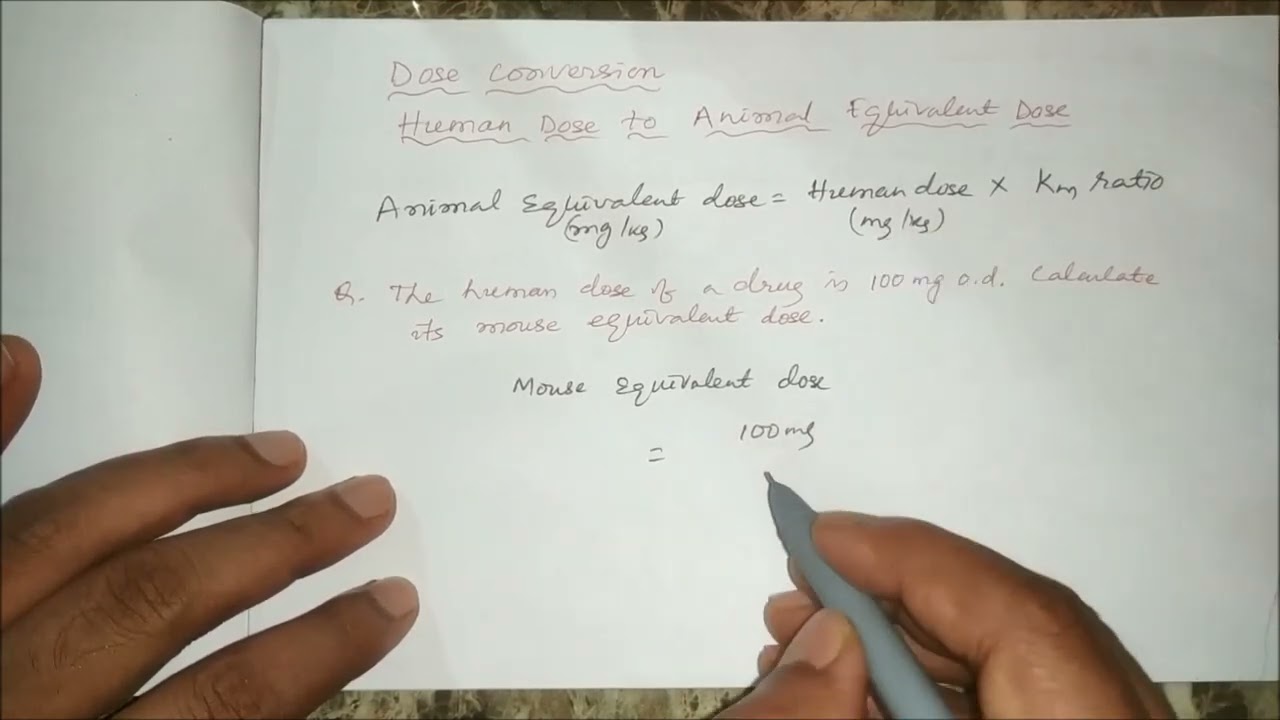 Dose Conversion
Human Dose to Animal Equivalent Dose
Animal Equivalent dose = Human dose × Km ratio
(mg/kg) (mg/kg)
Q. The human dose of a drug is 100 mg o.d. Calculate
its mouse equivalent dose.
Mouse Equivalent dose
= 100 mg